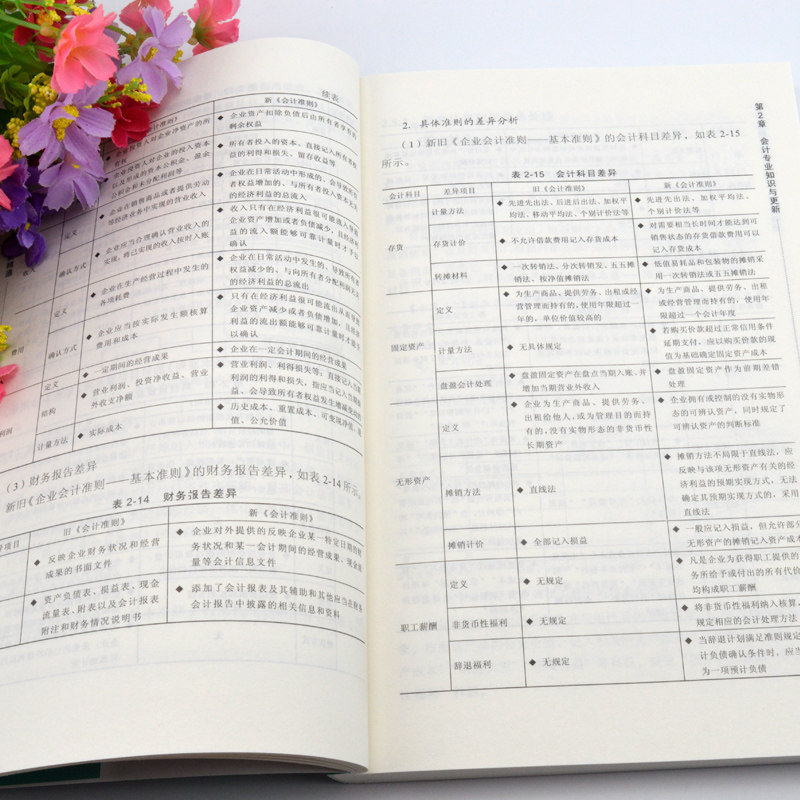 续表
新《会计准则》
企业资产扣除负债后由所有者享有的
剩余权益
所有者投入的资本、直接记入所有者
权益的利得和损失、留存收益等
企业在日常活动中形成的、会导致所有
者权益增加的、与所有者投入资本无关
的经济利益的总流入
收入只有在经济利益很可能流入导致
企业资产增加或者负债减少,且经济利
益的流入额能够可靠计量时才予以
确认
定义
企业销售商品或者提供劳动
等经济业务中实现的营业收入
收入
确认方式
企业应当合理确认营业收入的
实现,将已实现的收入按时入账
定义
企业在生产经营过程中发生的
各项耗费
企业在日常活动中发生的、导致所有者
权益减少的、与向所有者分配利润无关
的经济利益的总流出
费用
确认方式
企业应当按实际发生额核算
费用和成本
只有在经济利益很可能流出从而导致
企业资产减少或者负债增加,且经济
利益的流出额能够可靠计量时才能予
以确认
利润
定义
一定期间的经营成果
企业在一定会计期间的经营成果
结构
营业利润、投资净收益、营业
外收支净额
营业利润、利得损失等;直接记入当期
利润的利得和损失,指应当记入当期损
益、会导致所有者权益发生增减变动的
计量方法
实际成本
历史成本、重置成本、可变现净值、现
值、公允价值
(3)财务报告差异
新旧《企业会计准则——基本准则》的财务报告差异,如表 2-14 所示。
表 2-14 财务报告差异
差异项目 旧《会计准则》 新《会计准则》
反映企业财务状况和经营
成果的书面文件
企业对外提供的反映企业某一特定日期的财
务状况和某一会计期间的经营成果、现金流
量等会计信息文件
资产负债表、损益表、现金
流量表、附表以及会计报表
附注和财务情况说明书
添加了会计报表及其辅助和其他应当在财务
会计报告中披露的相关信息和资料
第2章 会计专业知识与更新
2. 具体准则的差异分析
(1)新旧《企业会计准则——基本准则》的会计科目差异,如表 2-15
所示。
表 2-15 会计科目差异
会计科目 差异项目 旧《会计准则》 新《会计准则》
存货
计量方法
先进先出法、后进后出法、加权平
均法、移动平均法、个别计价法等
先进先出法、加权平均法、
个别计价法等
存货计价
不允许借款费用记入存货成本
对需要相当长时间才能达到可
销售状态的存货借款费用可以
记入存货成本
转摊材料
一次转销法、分次转销发、五五摊
销法、按净值摊销法
低值易耗品和包装物的摊销采
用一次转销法或五五摊销法
固定资产
定义
为生产商品、提供劳务、出租或经
营管理而持有的,使用年限超过一
年的,单位价值较高的
为生产商品、提供劳务、出租
或经营管理而持有的,使用年
限超过一个会计年度
计量方法
无具体规定
若购买价款超过正常信用条件
延期支付,应以购买价款的现
值为基础确定固定资产成本
盘盈会计处理
盘盈固定资产在盘点当期入账,并
增加当期营业外收入
盘盈固定资产作为前期差错
处理
无形资产
定义
企业为生产商品、提供劳务、
出租给他人,或为管理目的而持
有的,没有实物形态的非货币性
长期资产
企业拥有或控制的没有实物形
态的可辨认资产,同时规定了
可辨认资产的判断标准
摊销方法
直线法
摊销方法不局限于直线法,应
反映与该项无形资产有关的经
济利益的预期实现方式,无法
确定其预期实现方式的,采用
直线法
摊销计价
全部记入损益
一般应记入损益,但允许部分
无形资产的摊销记入资产成本
职工薪酬
定义
无规定
凡是企业为获得职工提供的服
务所给予或付出的所有代价
均构成职工薪酬
非货币性福利
无规定
将非货币性福利纳入核算,
规定相应的会计处理方法
辞退福利
无规定
当辞退计划满足准则规定
计负债确认条件时,应当
为一项预计负债